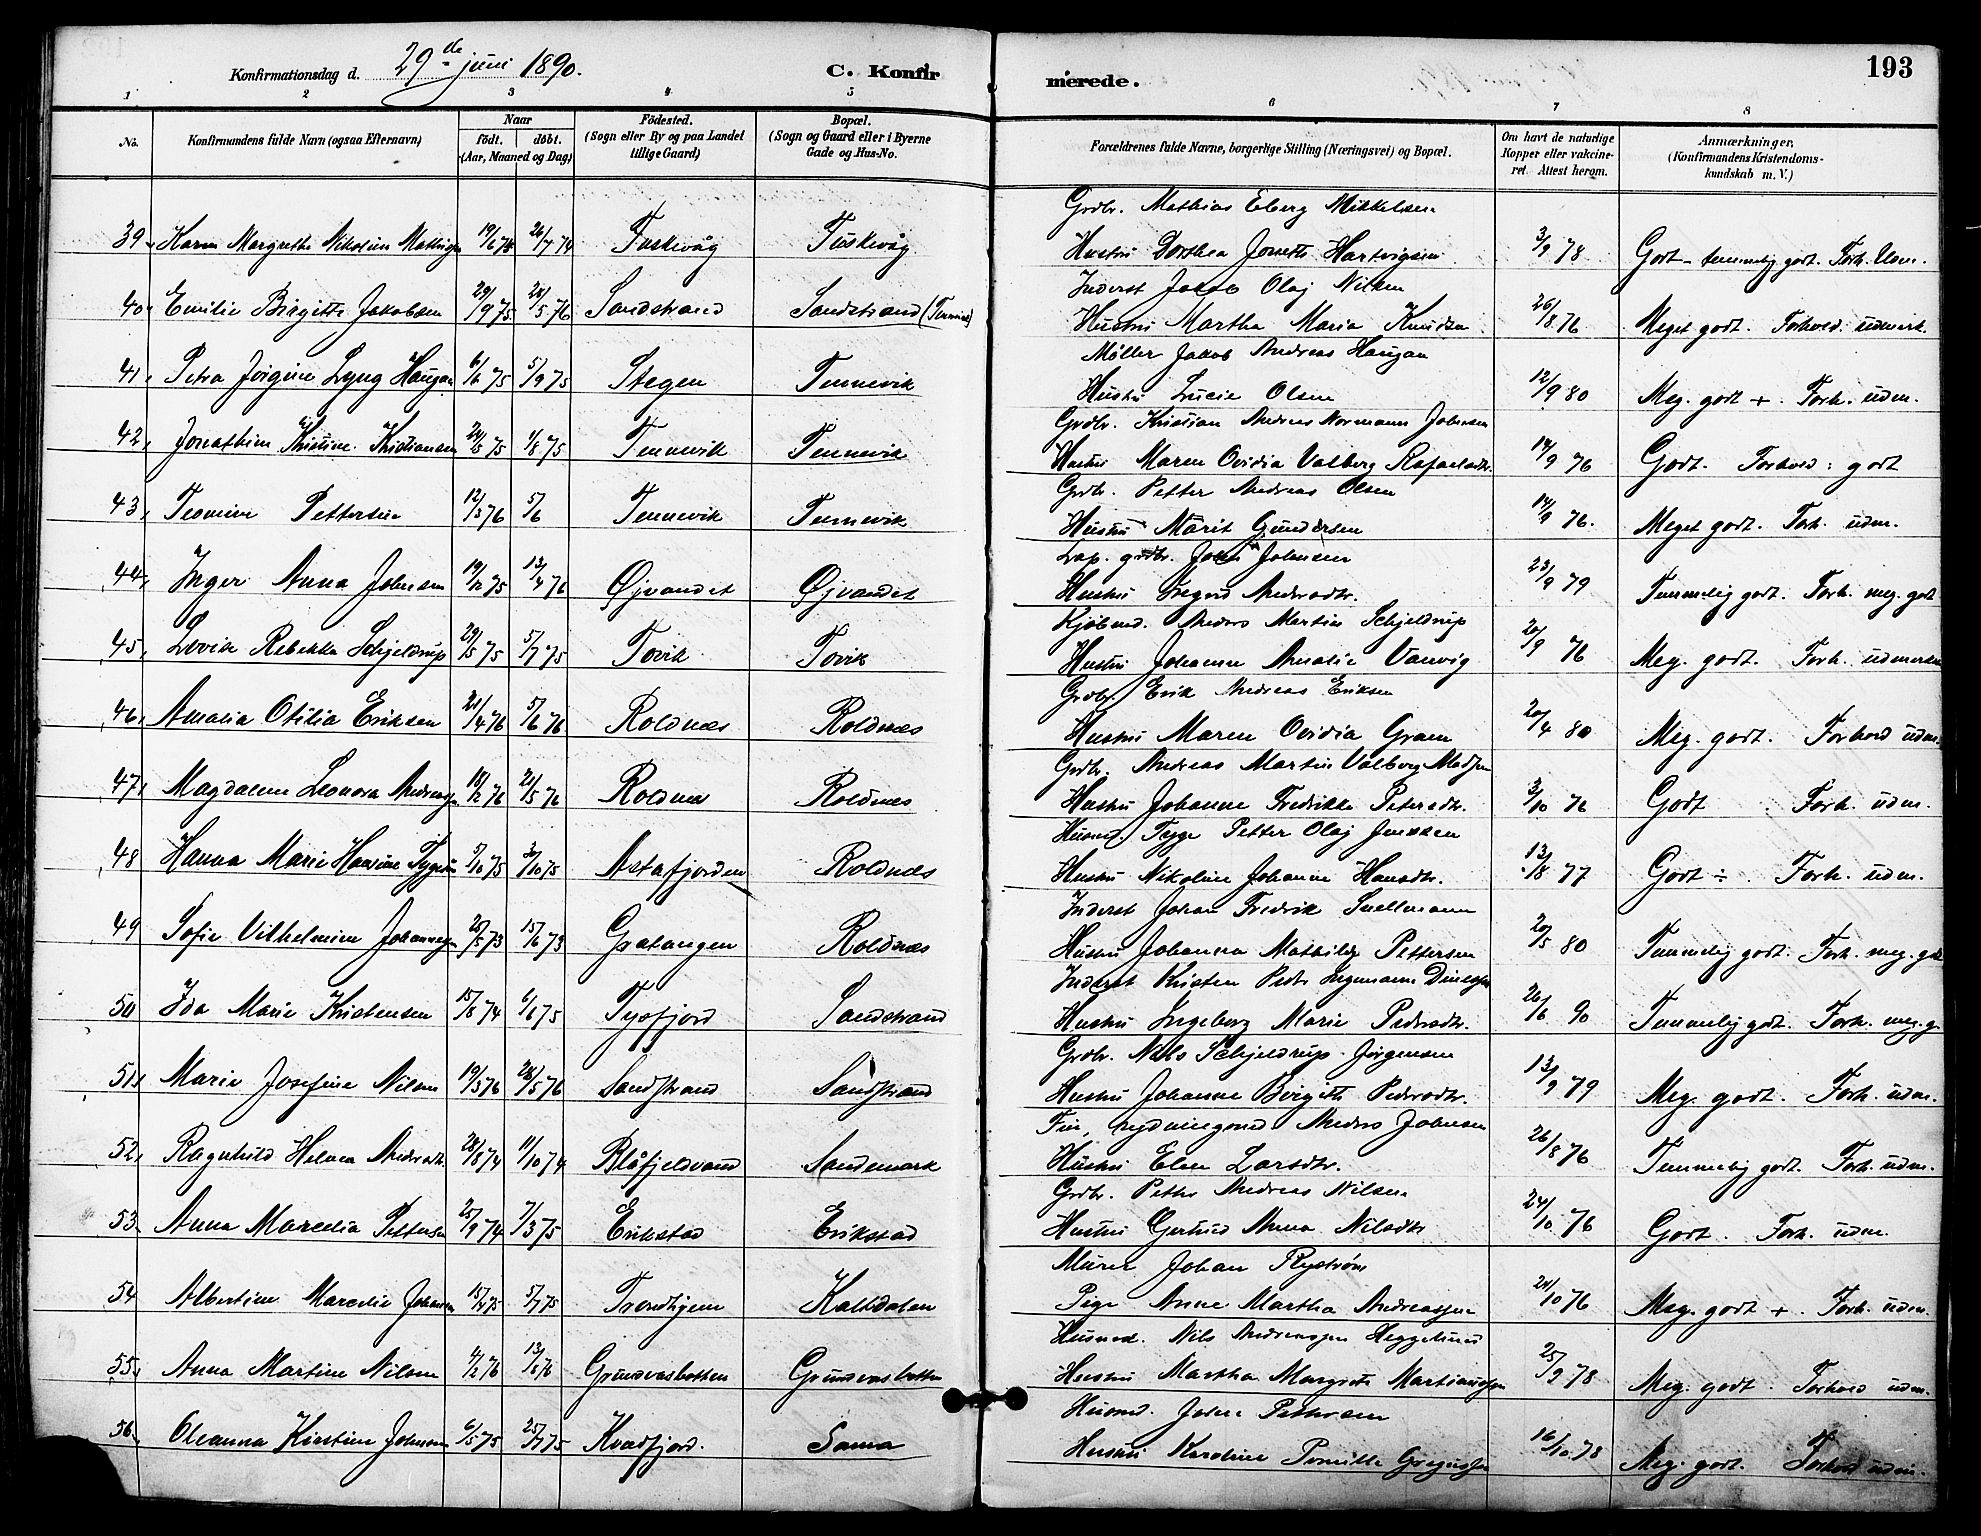 Konfirmationsdag d. 29de juni 1890.
C. Konfirmerede.
193
1 2 3 4 5 6 7 8
No. Konfirmandens fulde Navn (ogsaa Efternavn) Naar født. døbt. (Aar, Maaned og Dag) Fødested. (Sogn eller By og paa Landet tillige Gaard) Bopæl. (Sogn og Gaard eller i Byerne Gade og Hus-No. Forældrenes fulde Navne, borgerlige Stilling (Næringsvei) og Bopæl. Om havt de naturlige Kopper eller vakcineret. Attest herom. Anmærkninger. (Konfirmandens Kristendomskundskab m. V.)
Grdbr. Mathias Eberg Mikkelsen
39 Karen Margrethe Nikoline Mathisen 26/7 74 Tuskevåg Tuskevåg Hustru Dorthea Hartvigsen 3/9 78 Godt - temmelig godt. Forh. Udm.
Inderst Jakob Olaj Nilsen
40 Emilie Birgitte Jakobsen 29/9 75 28/5 76 Sandstrand Sandstrand Hustru Martha Maria Knudsen 26/8 76 Meget godt. Forhold: udmerk.
Møller Jakob Andreas Haugan
41 Petra Jørgine Lyng Haugan 6/6 75 5/9 75 Stegen Tennevik Hustru Lucie Olsen 12/9 80 Meg. godt +. Forh. udm.
Grdbr. Kristian Andreas Normann Johnsen
42 Kristine Kristiansen 1/8 75 Tennevik Tennevik Hustru Maren Ovidia Valberg Rafaelsdtr. 14/9 76 Godt. Forhold: godt
Grdbr. Petter Andreas Olsen
43 Pettersen 12/3 76 5/6 Tennevik Tennevik Hustru Marit Gundersen 14/9 76. Meget godt. Forh. udm.
Lap. grdbr. John Johnsen
44 Inger Anna Johnsen 19/12 75 13/4 76 Øjvandet Øjvandet Hustru Andersdtr. 23/9 79 Temmelig godt. Forh. meg. godt
Kjøbmd. Anders Martin Schjeldrup
45 Lovise Rebekka Schjeldrup 29/5 75 5/7 75 Tovik Tovik Hustru Johanne Amalie Vanvig 20/9 76 Meg. godt. Forh. udmerket
Grdbr. Erik Andreas Eriksen
46 Amalia Otilia Eriksen 21/4 76 5/6 76 Roldnæs Roldnæs Hustru Maren Ovidia Gram 20/4 80 Meg. godt. Forhold udm.
Grdbr. Andreas Martin Valberg Madsen
47 Magdalene Leonora Andreasen 18/2 76 21/5 76 Roldnæs Roldnæs Hustru Johanne Fredrikke Petersdtr. 3/10 76 Godt Forh. udm.
Husmd. Tyge Petter Olaj Jenssen
48 Hanna Marie Hansine Tygesen 3/10 75 Astafjorden Roldnæs Hustru Nikoline Johanne Hansdtr. 13/8 77 Godt ÷. Forh. udm.
Inderst Johan Fredrik Snellmann
49 Sofie Vilhelmine Johannesen 15/6 73 Gratangen Roldnæs Hustru Johanna Mathilde Pettersen 20/5 80 Temmelig godt. Forh. meg. godt
Inderst Kristen Peder Ingemann
50 Ida Marie Kristensen 15/8 74 6/6 75 Tysfjord Sandstrand Hustru Ingeborg Marie Pedersdtr. 26/6 90 Temmelig godt. Forh. meg. g.
Grdbr. Nils Schjeldrup Jørgensen
51 Marie Josefine Nilsen 19/3 76 28/5 76 Sandstrand Sandstrand Hustru Johanne Birgith Pedersdtr. 13/9 79 Meg. godt. Forh. udm.
Fin, rydningsmd. Anders Johnsen
52 Ragnhild Helmea Andersdtr. 28/8 74 11/10 74 Blåfjeldvand Sandemark Hustru Elen Larsdtr. 26/8 76 Temmelig godt. Forh. udm.
Grdbr. Petter Andreas Nilsen
53 Anna Marcelia Pettersen 25/9 74 7/3 75 Erikstad Erikstad Hustru Gertrud Anna Nilsdtr 24/10 76 Godt. Forh. udm.
Murer Johan Rystrøm
54 Albertine Marcelie Johansen 15/4 75 5/7 75 Trondhjem Kaltdalen Pige Anne Martha Andreassen 21/10 76 Meg. godt +. Forh. udm.
Husmd. Nils Andreassen Heggelund
55 Anna Martine Nilsen 4/2 76 13/8 76 Grundvasbotten Grundvasbotten Hustru Martha Margrethe Martinussen 25/9 78 Meg. godt. Forhold udm.
Husmd. John Pettersen
56 Oleanna Kirstine Johnsen 6/5 75 25/7 75 Kvædfjord. Sama Hustru Karoline Pernille Gregussen 16/10 78 Meg. godt. Forhold udm.